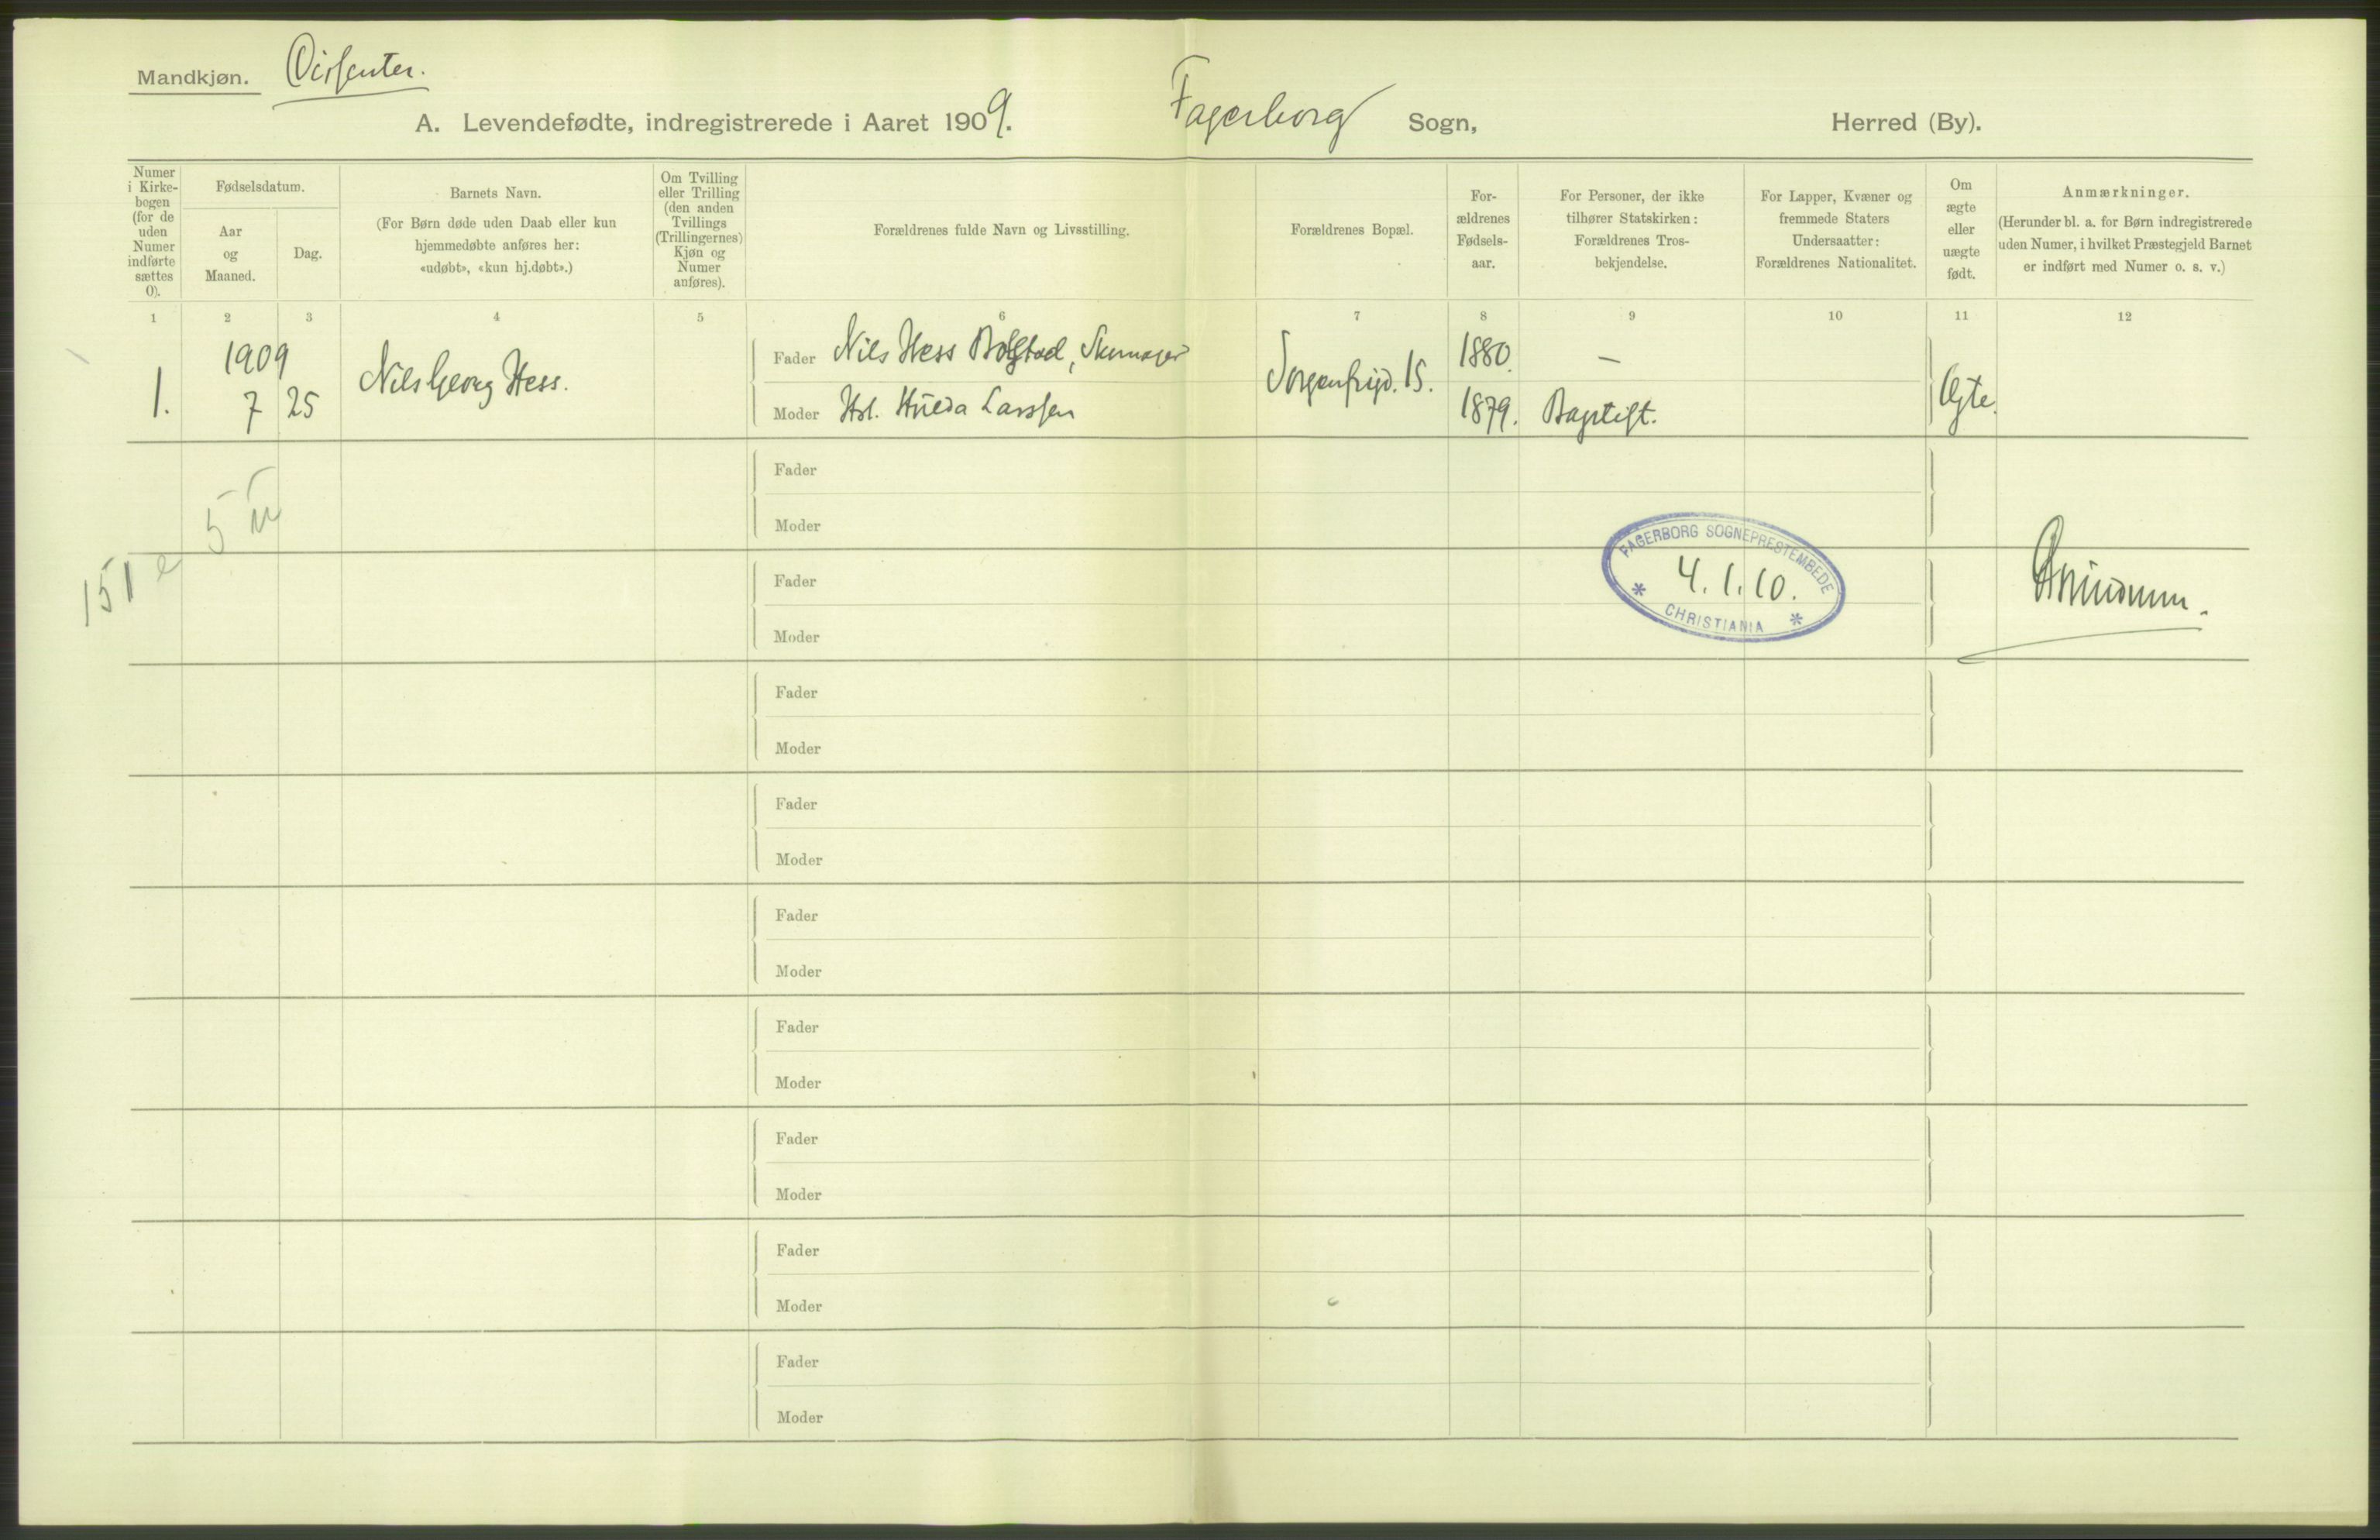 Mandkjøn. Dissenter.
A. Levendefødte, indregistrerede i Aaret 1909. Fagerborg Sogn, Herred (By).
Numer i Kirke-bogen (for de uden Numer indførte sættes 0).
Fødselsdatum.
Aar og Maaned.
Dag.
Barnets Navn.
(For Børn døde uden Daab eller kun
hjemmedøbte anføres her:
«udøbt», «kun hj.døbt».)
Om Tvilling
eller Trilling
(den anden
Tvillings
(Trillingernes)
Kjøn og
Numer
anføres).
Forældrenes fulde Navn og Livsstilling.
Forældrenes Bopæl.
For-
ældrenes
Fødsels-
aar.
For Personer, der ikke
tilhører Statskirken:
Forældrenes Tros-
bekjendelse.
For Lapper, Kvæner og
fremmede Staters
Undersaatter:
Forældrenes Nationalitet.
Om
ægte
eller
uægte
født.
Anmærkninger.
(Herunder bl. a. for Børn indregistrerede
uden Numer, i hvilket Præstegjeld Barnet
er indført med Numer o. s. v.)
1 2 3 4 5 6 7 8 9 10 11 12
1909
1. 7 25 Nils Georg Hess.
Fader Nils Hess Bolstad, Skomager
Moder Hst. Hilda Larssen
Sorgenfrigd. 15.
1880. —
1879. Baptist.
Ægte.
Fader
Moder
5
151 e
Fader
Moder
FAGERBORG SOGNEPRESTEMBEDE
4.1.10.
* CHRISTIANIA *
Fader
Moder
Fader
Moder
Fader
Moder
Fader
Moder
Fader
Moder
Fader
Moder
Fader
Moder